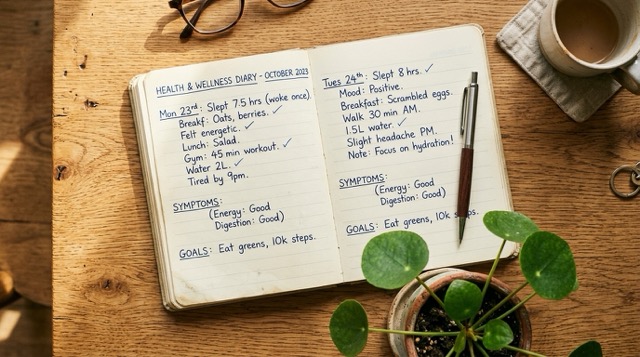 HEALTH & WELLNESS DIARY - OCTOBER 2023
Mon 23rd: Slept 7.5 hrs (woke once)
Breakf: Oats, berries. ✓
Felt energetic. ✓
Lunch: Salad.
Gym: 45 min workout. ✓
Water 2L. ✓
Tired by 9pm.
SYMPTOMS:
(Energy: Good
Digestion: Good)
GOALS: Eat greens, 10k steps.
Tues 24th: Slept 8 hrs. ✓
Mood: Positive.
Breakfast: Scrambled eggs.
Walk 30 min AM.
1.5L water. ✓
Slight headache PM.
Note: Focus on hydration!
SYMPTOMS:
(Energy: Good
Digestion: Good)
GOALS: Eat greens, 10k steps.